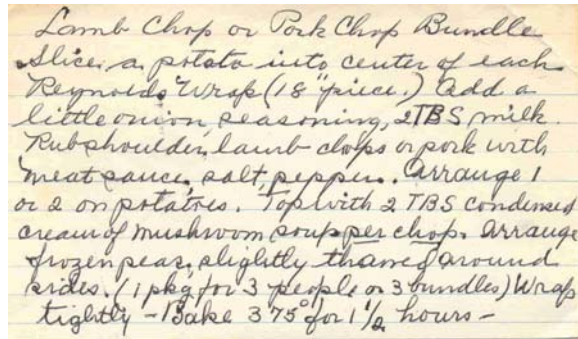 Lamb Chop or Pork Chop Bundle
Slice a potato into center of each
Reynolds Wrap (18" piece.) Add a
little onion, seasoning, 2 TBS milk.
Rub shoulder lamb chops or pork with
meat sauce, salt, pepper. Arrange 1
or 2 on potatoes. Top with 2 TBS condensed
cream of mushroom soup per chop. Arrange
frozen peas, slightly thawed around
sides. (1 pkg for 3 people or 3 bundles) Wrap
tightly - Bake 375° for 1 1/2 hours -